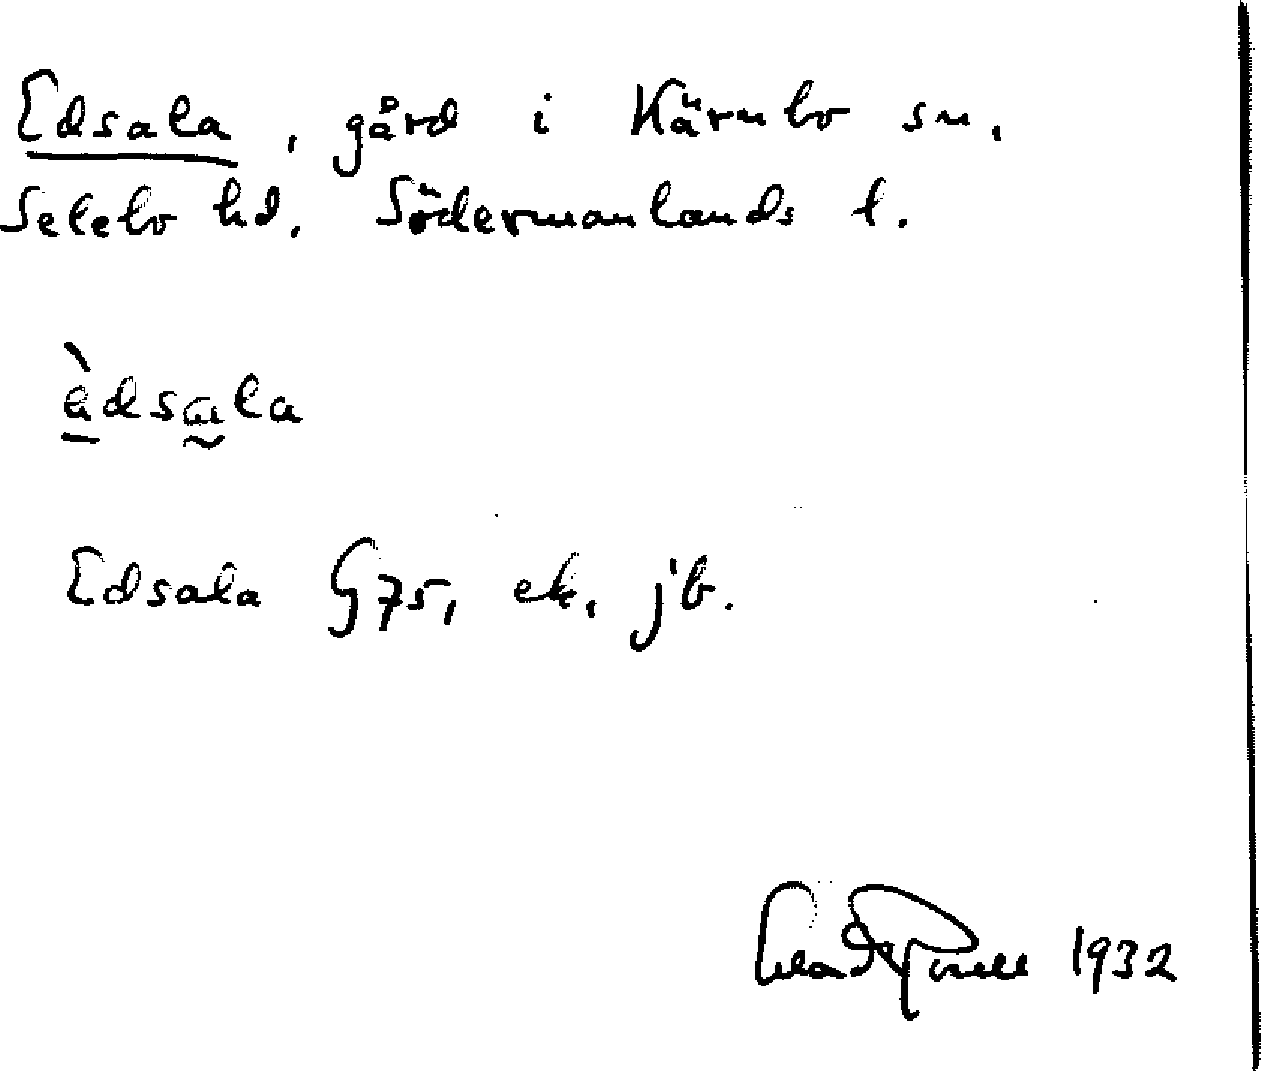 Edsala, gård i Kärnbo sn,
Selebo hd. Södermanlands l.
èdsala
Edsala G75, ek, jb.
1932